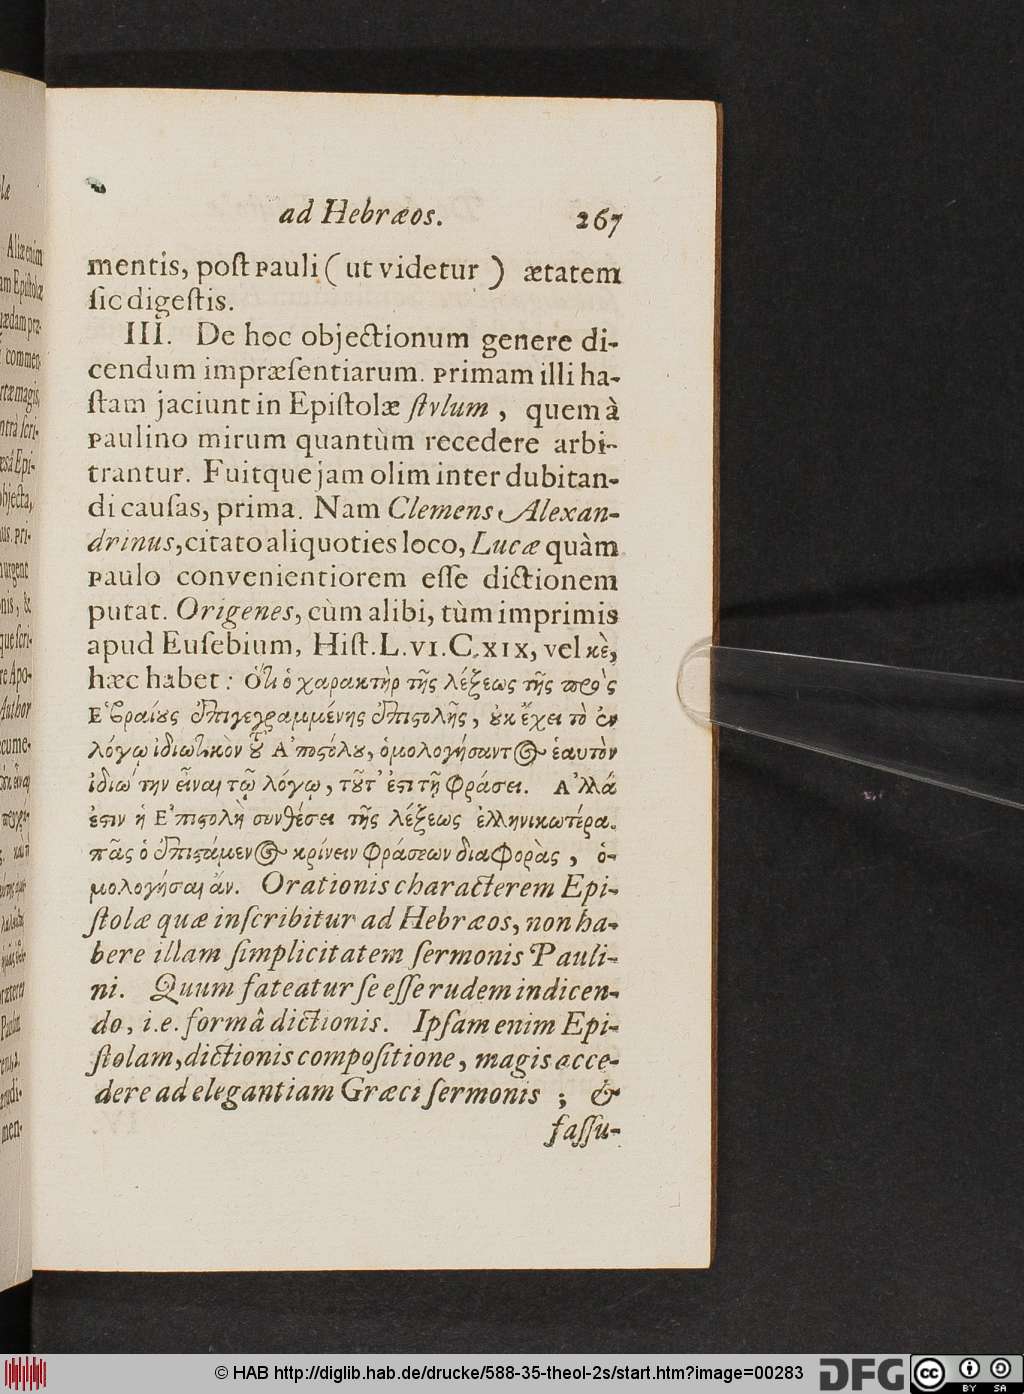 ad Hebræos. 267
mentis, poſt Pauli ( ut videtur ) ætatem
ſic digeſtis.
III. De hoc objectionum genere di-
cendum impræſentiarum. Primam illi ha-
ſtam jaciunt in Epiſtolæ ſtylum , quem à
Paulino mirum quantùm recedere arbi-
trantur. Fuitque jam olim inter dubitan-
di cauſas, prima. Nam Clemens Alexan-
drinus, citato aliquoties loco, Lucæ quàm
Paulo convenientiorem eſſe dictionem
putat. Origenes, cùm alibi, tùm imprimis
apud Euſebium, Hiſt. L. VI. C. XIX, vel κὲ,
hæc habet : Ὅτι ὁ χαρακτὴρ τῆς λέξεως τῆς πρὸς
Ἑβραίους ἐπιγεγραμμένης ἐπιστολῆς , οὐκ ἔχει τὸ ἐν
λόγῳ ἰδιωτικὸν τοῦ Ἀποστόλου, ὁμολογήσαντος ἑαυτὸν
ἰδιώτην εἶναι τῷ λόγῳ, τοῦτ' ἐστι τῇ φράσει. Ἀλλά
ἐστιν ἡ Ἐπιστολὴ συνθέσει τῆς λέξεως ἑλληνικωτέρα.
πᾶς ὁ ἐπιστάμενος κρίνειν φράσεων διαφορὰς , ὁ-
μολογήσαι ἄν. Orationis characterem Epi-
ſtolæ quæ inſcribitur ad Hebræos, non ha-
bere illam ſimplicitatem ſermonis Pauli-
ni. Quum fateatur ſe eſſe rudem in dicen-
do, i.e. formâ dictionis. Ipſam enim Epi-
ſtolam, dictionis compoſitione, magis acce-
dere ad elegantiam Græci ſermonis ; &
faſſu-
© HAB http://diglib.hab.de/drucke/588-35-theol-2s/start.htm?image=00283
DFG
cc BY SA